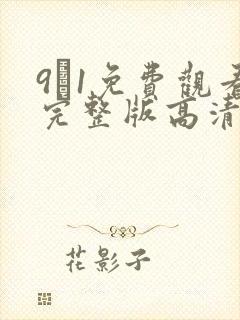 9�1免費觀看
完整版高清
花影子